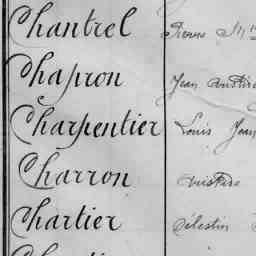 Chantrel Pierre
Chapron Jean
Charpentier Louis Jean
Charron
Chartier Célestin